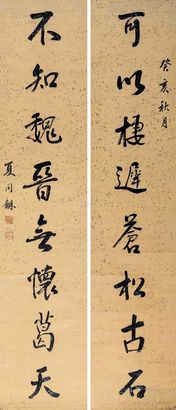 癸亥秋月
可以棲遲蒼松古石
不知魏晉無懷葛天
夏同龢